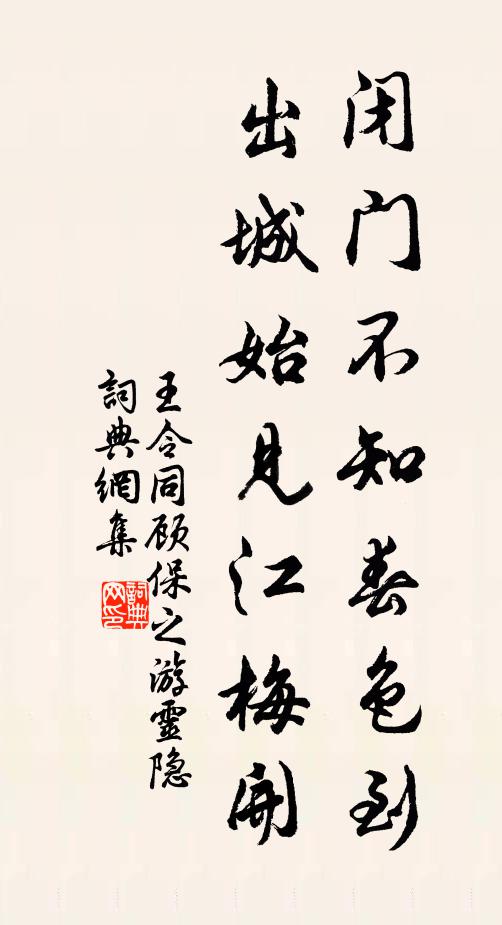 闭门不知春色到
出城始见江梅開
王令同顾保之游靈隐
詞典網集
詞典
网印